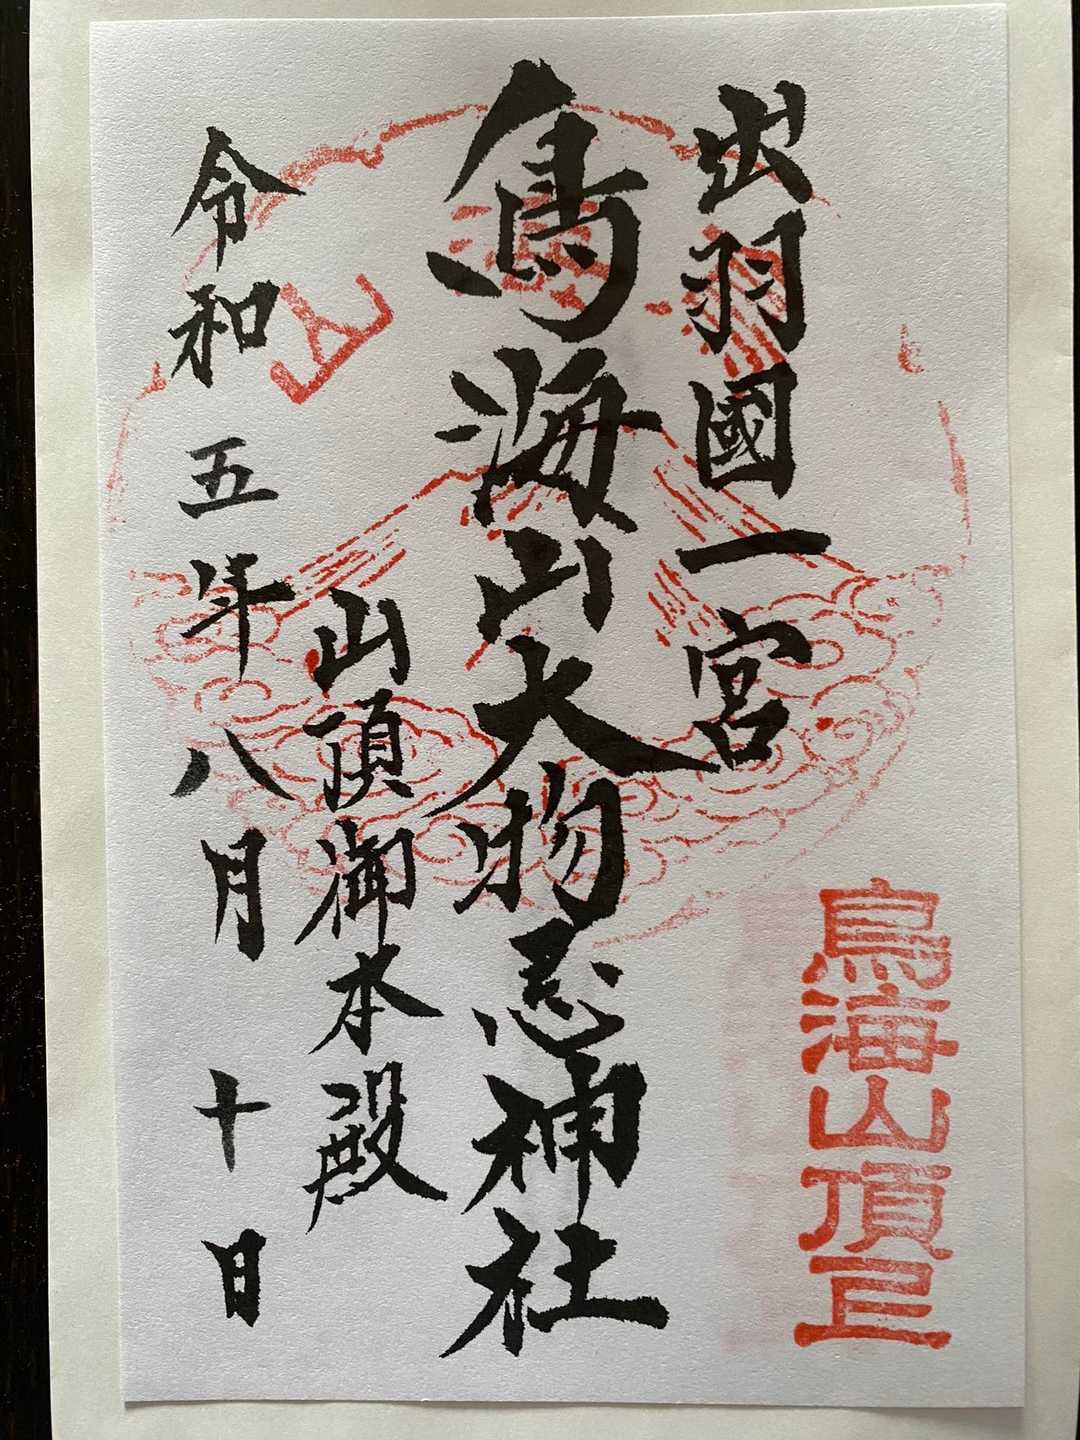 出羽國一宮
鳥海山大物忌神社
山頂御本殿
令和五年八月十日
鳥海山頂上